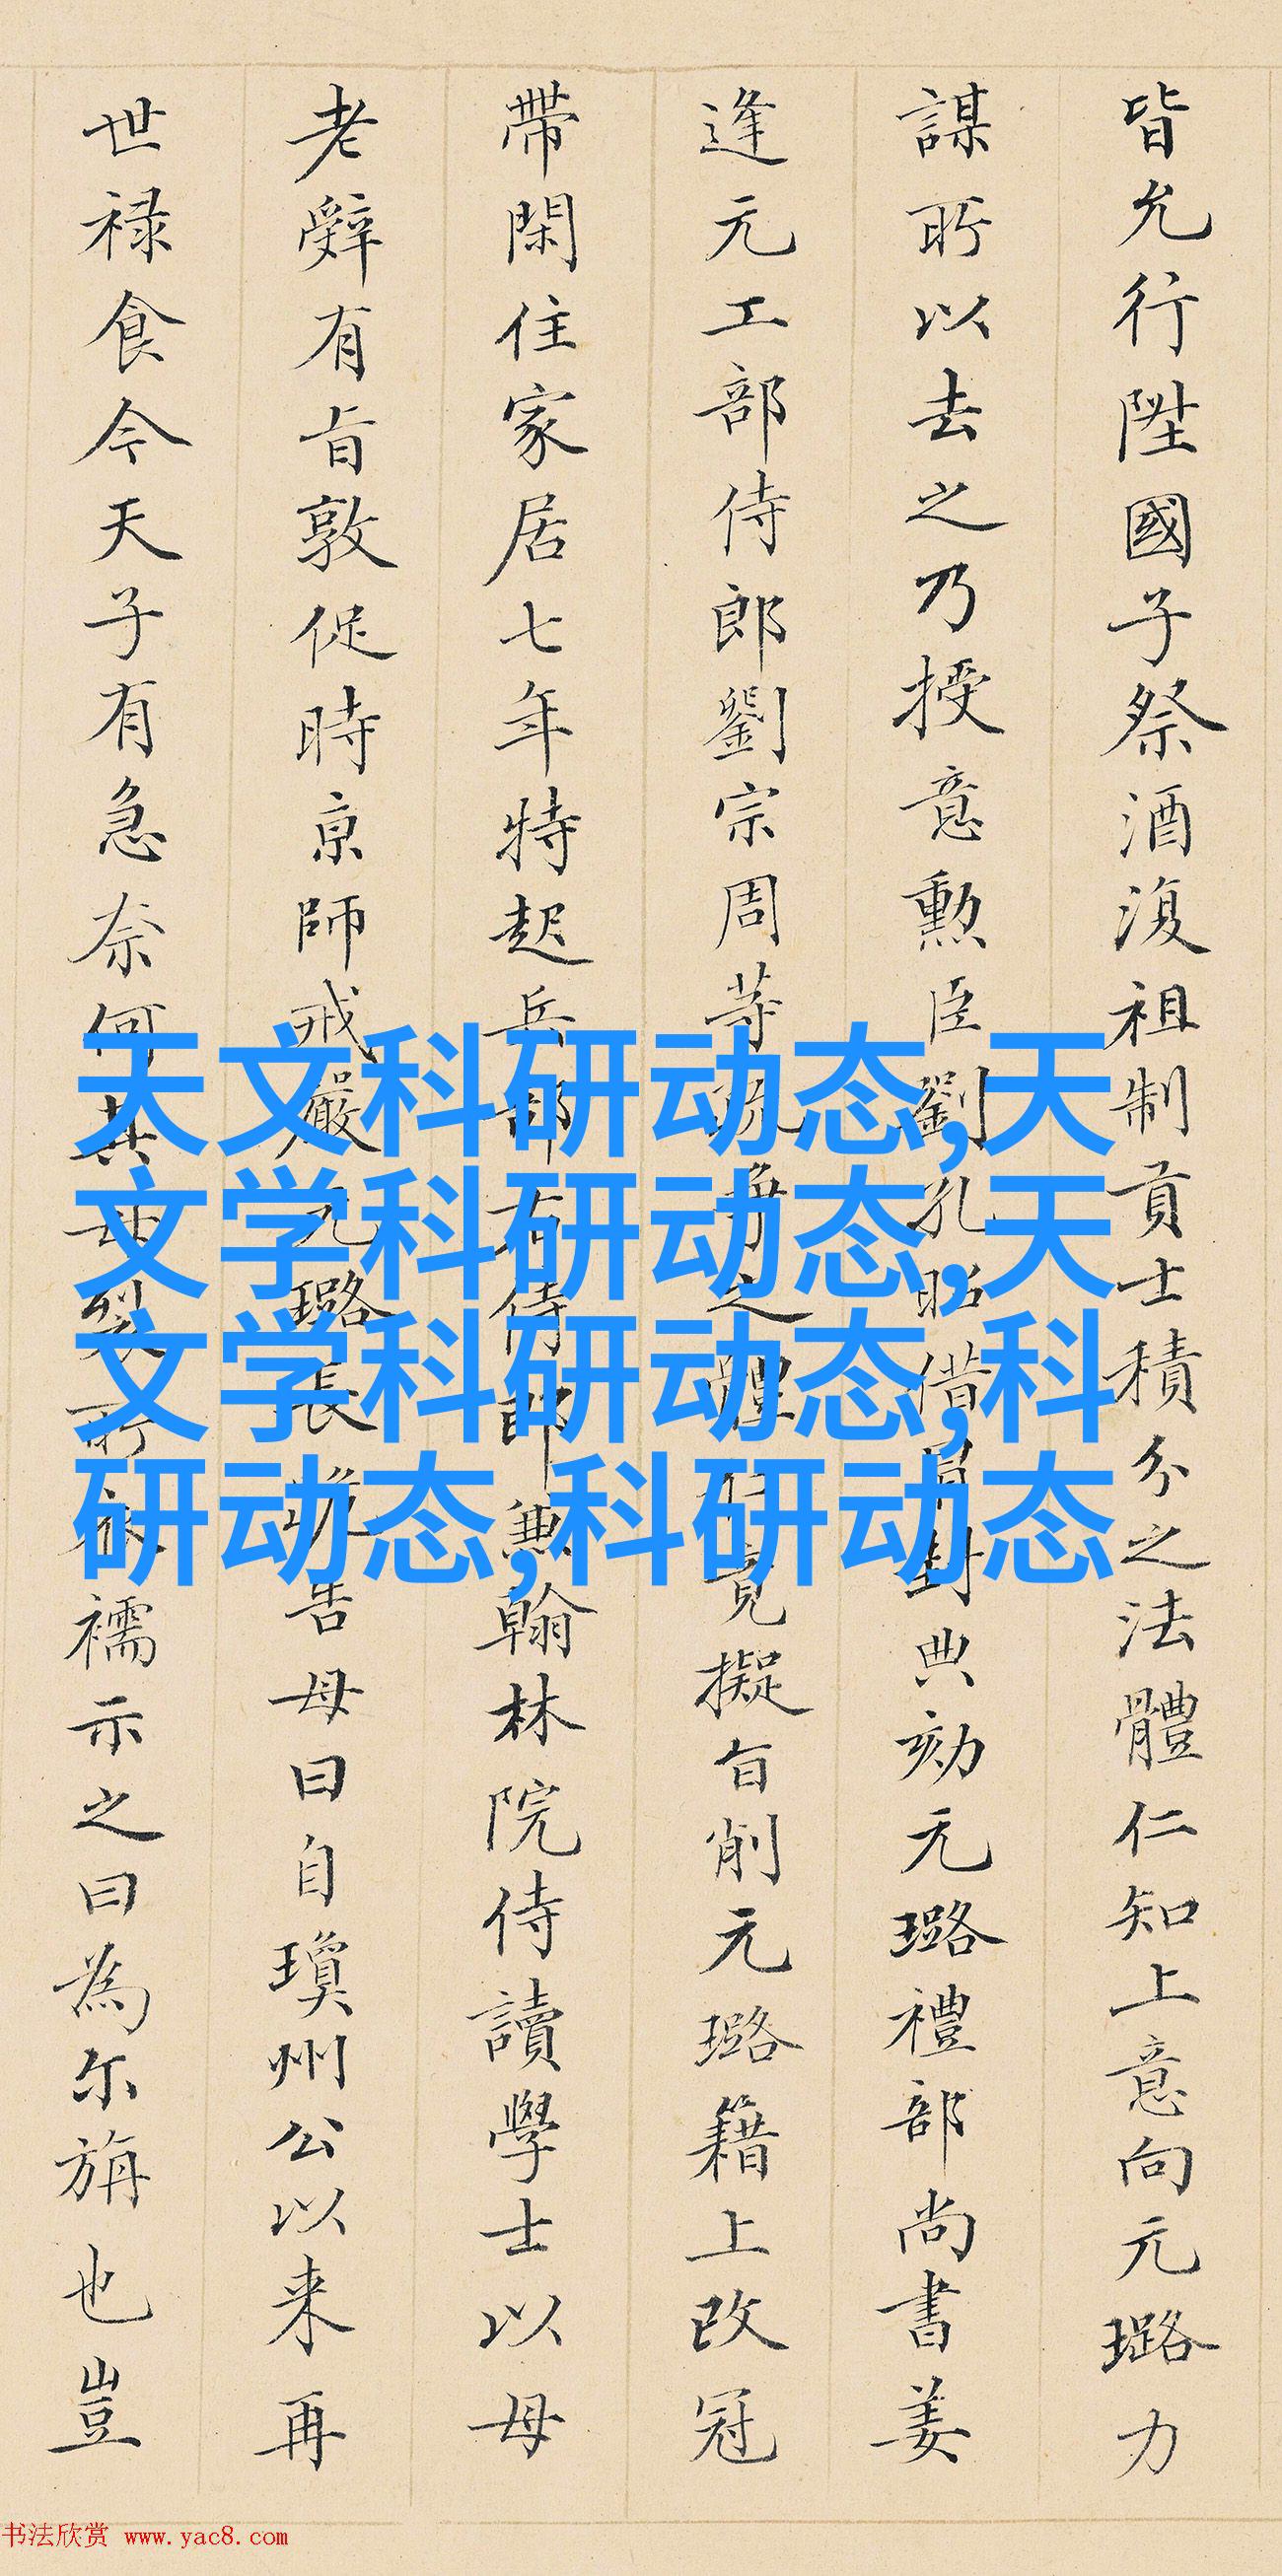 皆允行陞國子祭酒復祖制貢士積分之法體仁知上意向元璐力
謀所以去之乃授意勲臣劉孔昭借封典劾元璐禮部尚書姜
逢元工部侍郎劉宗周等疏之體仁竟擬旨削元璐籍上改冠
帶閑住家居七年特起兵部右侍郎兼翰林院侍讀學士以母
老辭有旨敦促時京師戒嚴元璐長告母曰自瓊州公以来再
世禄食今天子有急奈何其裂所衣襦示之曰為尓旃也豈
天文科研动态,天
文学科研动态,天
文学科研动态,科
研动态,科研动态
书法欣赏 www.yac8.com